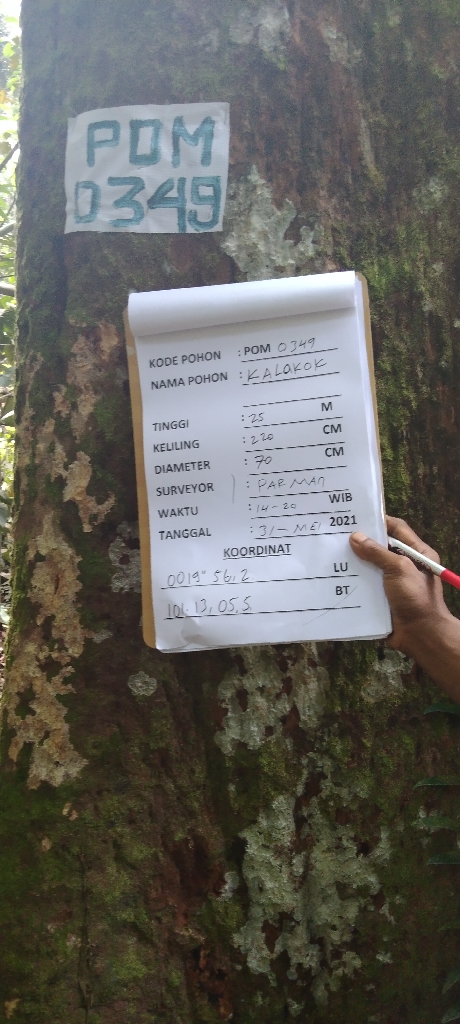 POM
0349
KODE POHON : POM 0349
NAMA POHON : KALOKOK
TINGGI : 25 M
KELILING : 220 CM
DIAMETER : 70 CM
SURVEYOR : PARMAN
WAKTU : 14-20 WIB
TANGGAL : 31-MEI 2021
KOORDINAT
0019° 56,2 LU
101.13,05,5 BT